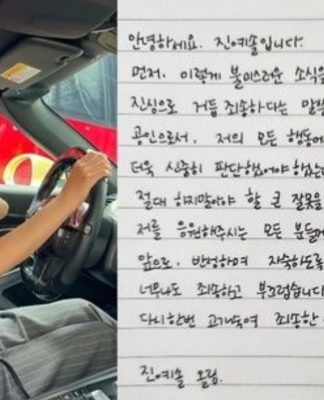 안녕하세요. 진예솔입니다.
먼저, 이렇게 불미스러운 소식을
진심으로 거듭 죄송하다는 말씀
공인으로서, 저의 모든 행동에
더욱 신중히 판단했어야 했는데
절대 하지말아야 할 큰 잘못을
저를 응원해주시는 모든 분들께
앞으로, 반성하며 자숙하도록
너무나도 죄송하고 부끄럽습니다
다시한번 고개숙여 죄송한
진예솔 올림.